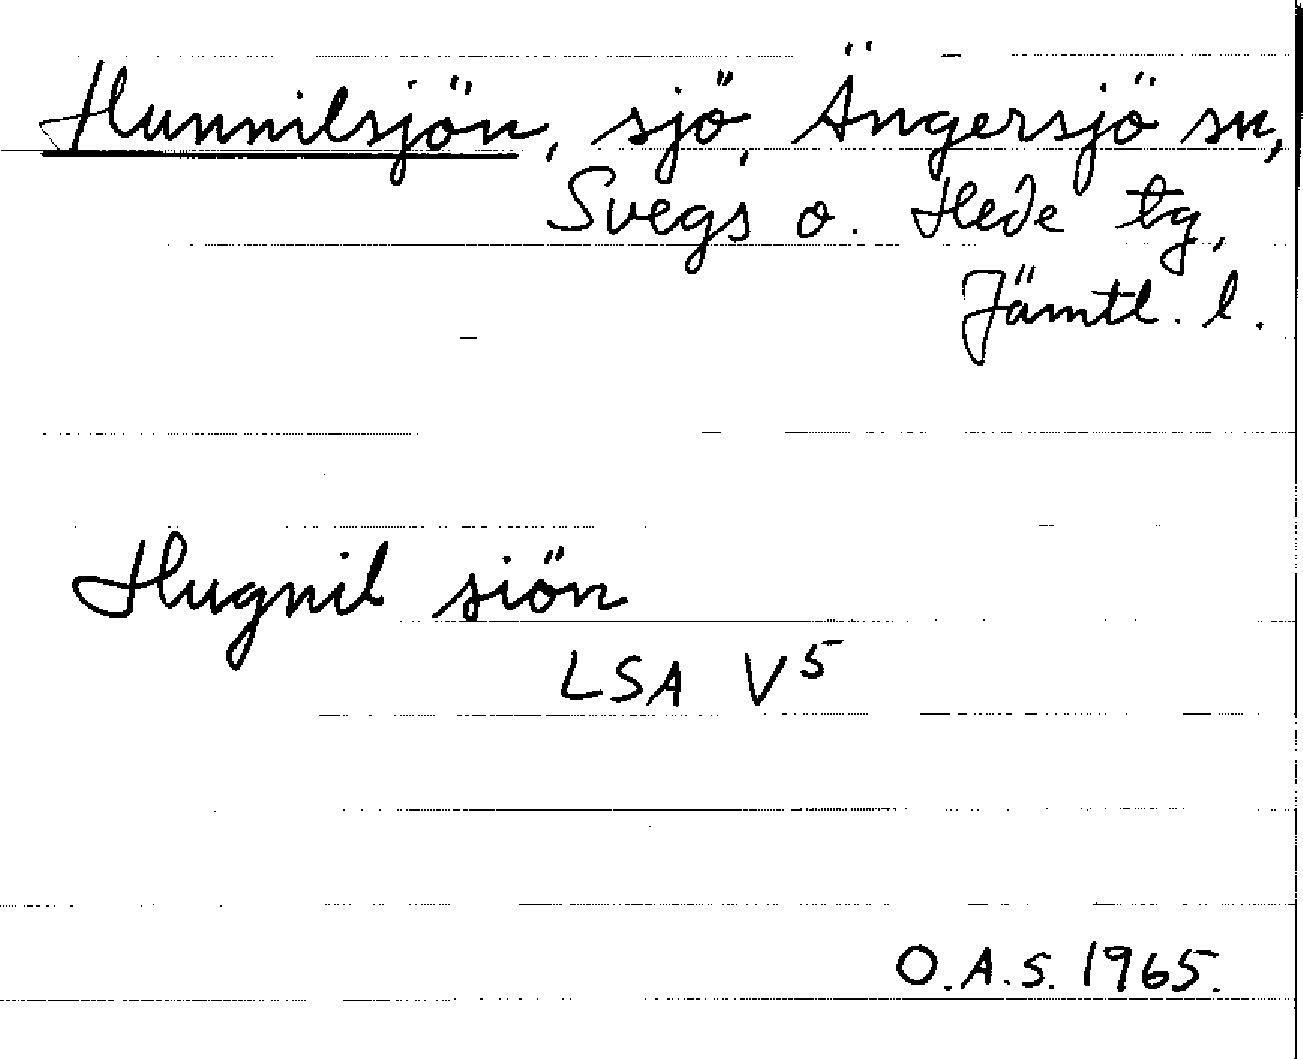 Hunnilsjön, sjö, Ängersjö sn,
Svegs o. Hede tg,
Jämtl. l.
Hugnil siön
LSA V5
O.A.S. 1965.